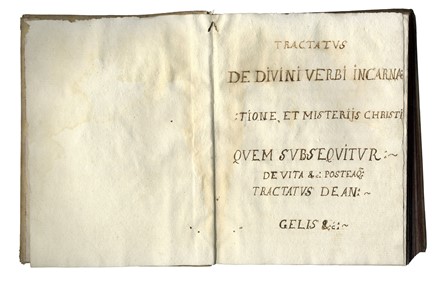 TRACTATVS
DE DIVINI VERBI INCARNA
:TIONE, ET MISTERIJS CHRISTI
QVEM SVBSEQVITVR :~
DE VITA &c: POSTEAQ;
TRACTATVS DE AN: ~
GELIS &c: ~